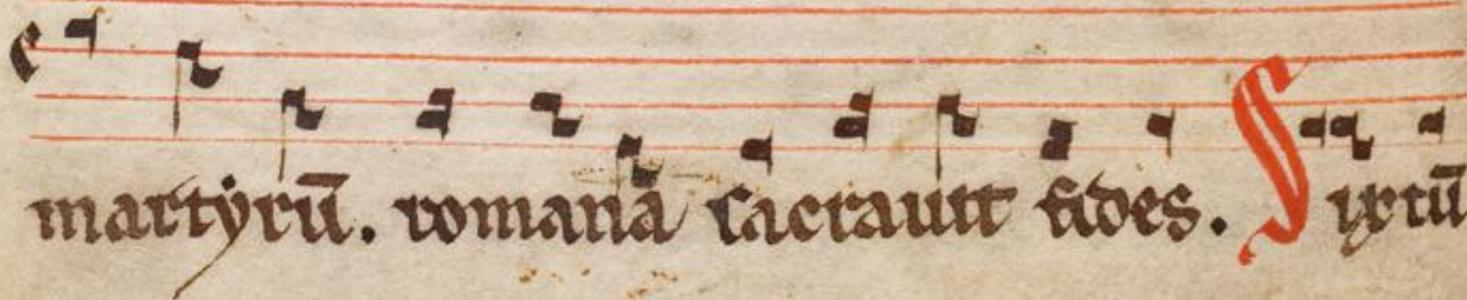 martyrū. romanā sacrauit fides. Sixtū